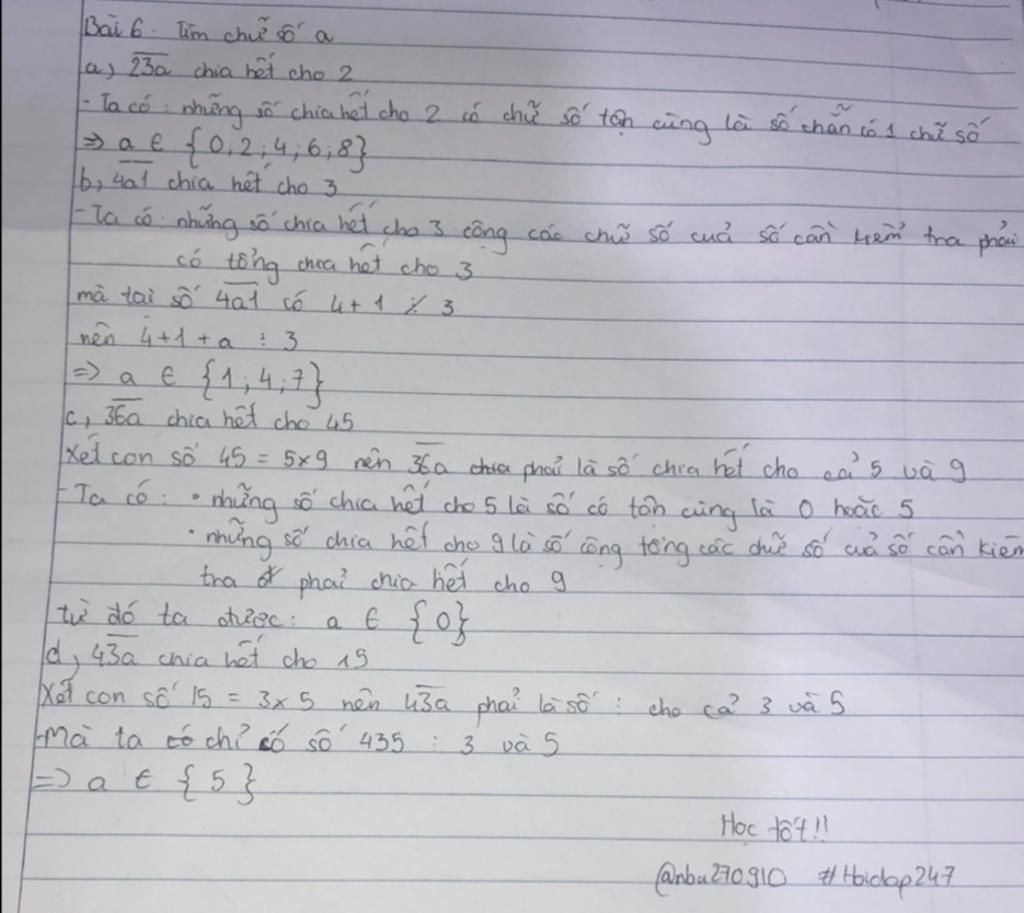 Bài 6. Tìm chữ số a
a, 23a chia hết cho 2
- Ta có: những số chia hết cho 2 có chữ số tận cùng là số chẵn có 1 chữ số
=> a ∈ {0; 2; 4; 6; 8}
b, 4a1 chia hết cho 3
- Ta có: những số chia hết cho 3 cộng các chữ số cuả số cần kiểm tra phải
có tổng chia hết cho 3
mà tại số 4a1 có 4 + 1 ⋮̸ 3
nên 4+1+a ⋮ 3
=> a ∈ {1; 4; 7}
c, 36a chia hết cho 45
Xét con số 45 = 5x9 nên 36a chia phải là số chia hết cho cả 5 và 9
- Ta có: • những số chia hết cho 5 là số có tận cùng là 0 hoặc 5
• những số chia hết cho 9 là số cộng tổng các chữ số cuả số cần kiểm
tra phải chia hết cho 9
từ đó ta được: a ∈ {0}
d, 43a chia hết cho 15
Xét con số 15 = 3x5 nên 43a phải là số ⋮ cho cả 3 và 5
Mà ta có chỉ có số 435 ⋮ 3 và 5
=> a ∈ {5}
Học tốt!!
@nbu270910 #Hoidap247